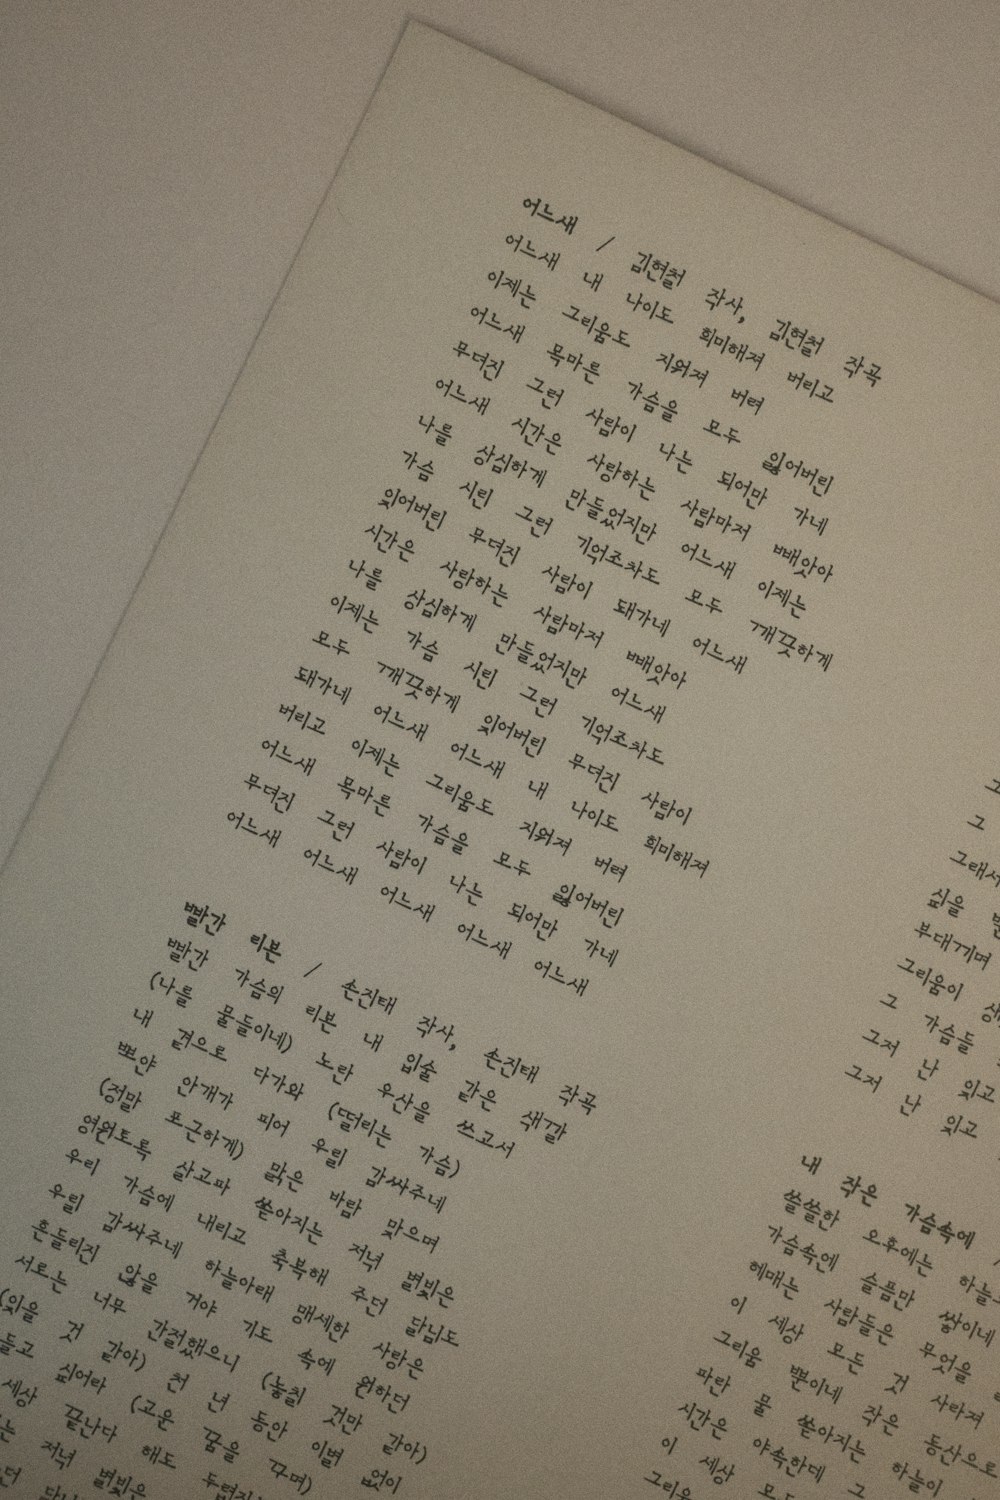 어느새 / 김현철 작사, 김현철 작곡
어느새 내 나이도 희미해져 버리고
이제는 그리움도 지워져 버려
어느새 목마른 가슴을 모두 잃어버린
무뎌진 그런 사람이 나는 되어만 가네
어느새 시간은 사랑하는 사람마저 빼앗아
나를 상심하게 만들었지만 어느새 이제는
가슴 시린 그런 기억조차도 모두 깨끗하게
잊어버린 무뎌진 사람이 돼가네 어느새
시간은 사랑하는 사람마저 빼앗아
나를 상심하게 만들었지만 어느새
이제는 가슴 시린 그런 기억조차도
모두 깨끗하게 잊어버린 무뎌진 사람이
돼가네 어느새 어느새 내 나이도 희미해져
버리고 이제는 그리움도 지워져 버려
어느새 목마른 가슴을 모두 잃어버린
무뎌진 그런 사람이 나는 되어만 가네
어느새 어느새 어느새 어느새 어느새
빨간 리본 / 손진태 작사, 손진태 작곡
빨간 가슴의 리본 내 입술 같은 색깔
(나를 물들이네) 노란 우산을 쓰고서
내 곁으로 다가와 (떨리는 가슴)
뽀얀 안개가 피어 우릴 감싸주네
(정말 포근하게) 맑은 바람 맞으며
영원토록 살고파 쏟아지는 저녁 별빛은
우리 가슴에 내리고 축복해 주던 달님도
우릴 감싸주네 하늘아래 맹세한 사랑은
흔들리진 않을 거야 기도 속에 원하던
서로는 너무 간절했으니 (놓칠 것만 같아)
(있을 것 같아) 천 년 동안 이별 없이
들고 싶어라 (고운 꿈을 꾸며)
세상 끝난다 해도 두렵진
저녁 별빛은
그
그래서
부대끼며
그리움이
그 가슴들
그저 난 잊고
그저 난 잊고
내 작은 가슴속에 /
쓸쓸한 오후에는
가슴속엔 슬픔만 쌓이네
헤매는 사람들은 무엇을
이 세상 모든 것 사라져
그리움 뿐이네 작은 동산으로
파란 물 쏟아지는 하늘이
시간은 야속한데 그
이 세상